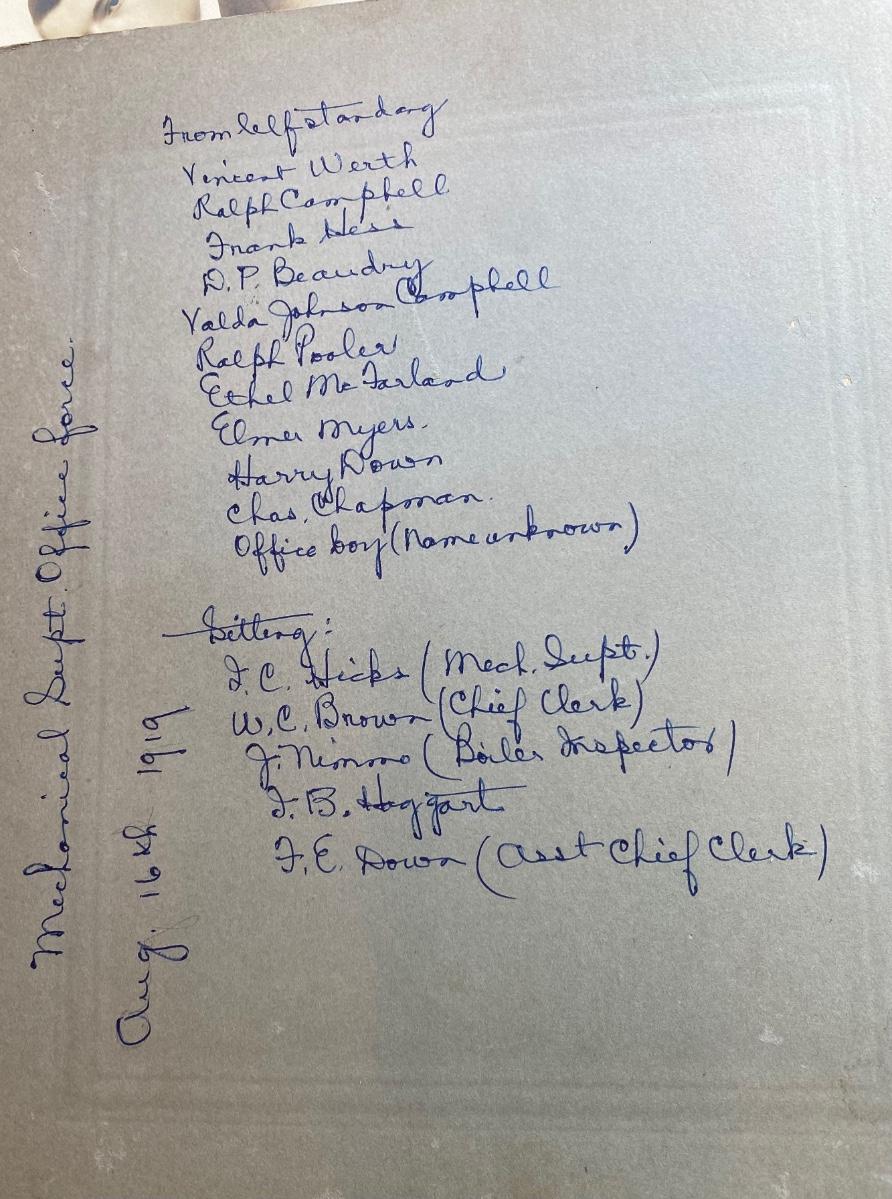 From left standing
Vincent Werth
Ralph Campbell
Frank Hess
D.P. Beaudry
Valda Johnson Campbell
Ralph Pooler
Ethel McFarland
Elmer Myers.
Harry Down
Chas. Chapman.
Office boy (Name unknown)
Sitting:
F.C. Hicks (Mech. Supt.)
W.C. Brown (Chief Clerk)
J. Nimmo (Boiler Inspector)
F.B. Haggart
F.E. Down (Asst Chief Clerk)
Mechanical Supt. Office force.
Aug. 16th 1919